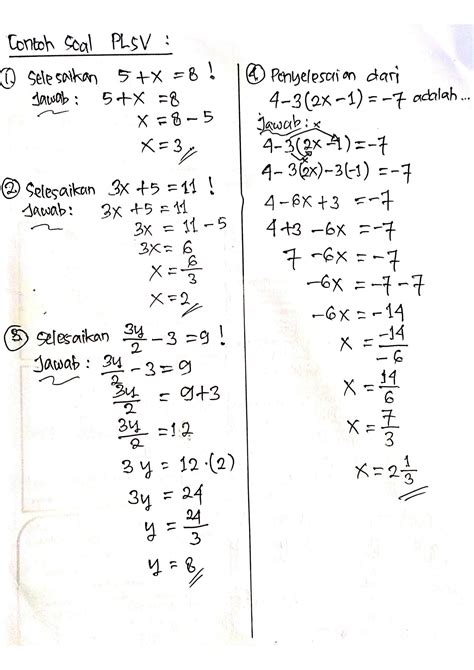 Contoh Soal PLSV :
① Selesaikan 5+x = 8 !
Jawab : 5+x = 8
x = 8 - 5
x = 3
② Selesaikan 3x + 5 = 11 !
Jawab : 3x + 5 = 11
3x = 11 - 5
3x = 6
x = 6/3
x = 2
③ Selesaikan 3y/2 - 3 = 9 !
Jawab : 3y/2 - 3 = 9
3y/2 = 9+3
3y/2 = 12
3y = 12 · (2)
3y = 24
y = 24/3
y = 8
④ Penyelesaian dari
4-3(2x-1) = -7 adalah ...
Jawab :
4-3(2x-1) = -7
4-3(2x)-3(-1) = -7
4-6x+3 = -7
4+3-6x = -7
7-6x = -7
-6x = -7-7
-6x = -14
x = -14/-6
x = 14/6
x = 7/3
x = 2 1/3